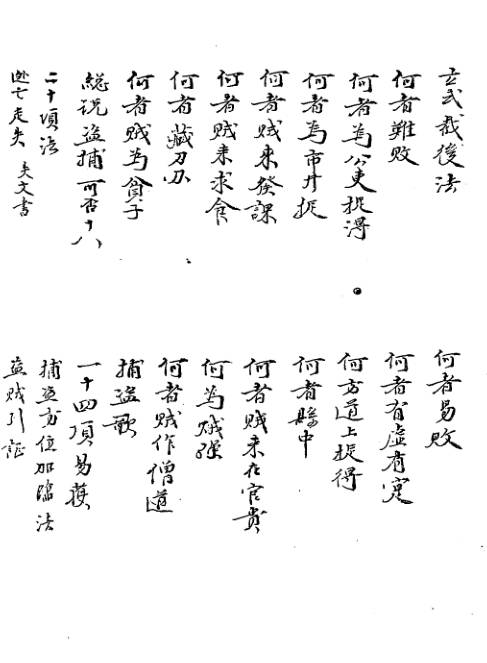 玄武發後法
何者難敗
何者為公吏捉得
何者為市井捉
何者賊來發課
何者賊來求食
何者藏刀刃
何者賊為貧子
總說盜捕可否十八
二十項法
逃亡走失 失文書
何者易敗
何者有虛有寔
何方道上捉得
何者縣中
何者賊來在官貴
何為賊強
何者賊作僧道
捕盜歌
一十四項易獲
捕盜方位加臨法
盜賊引証